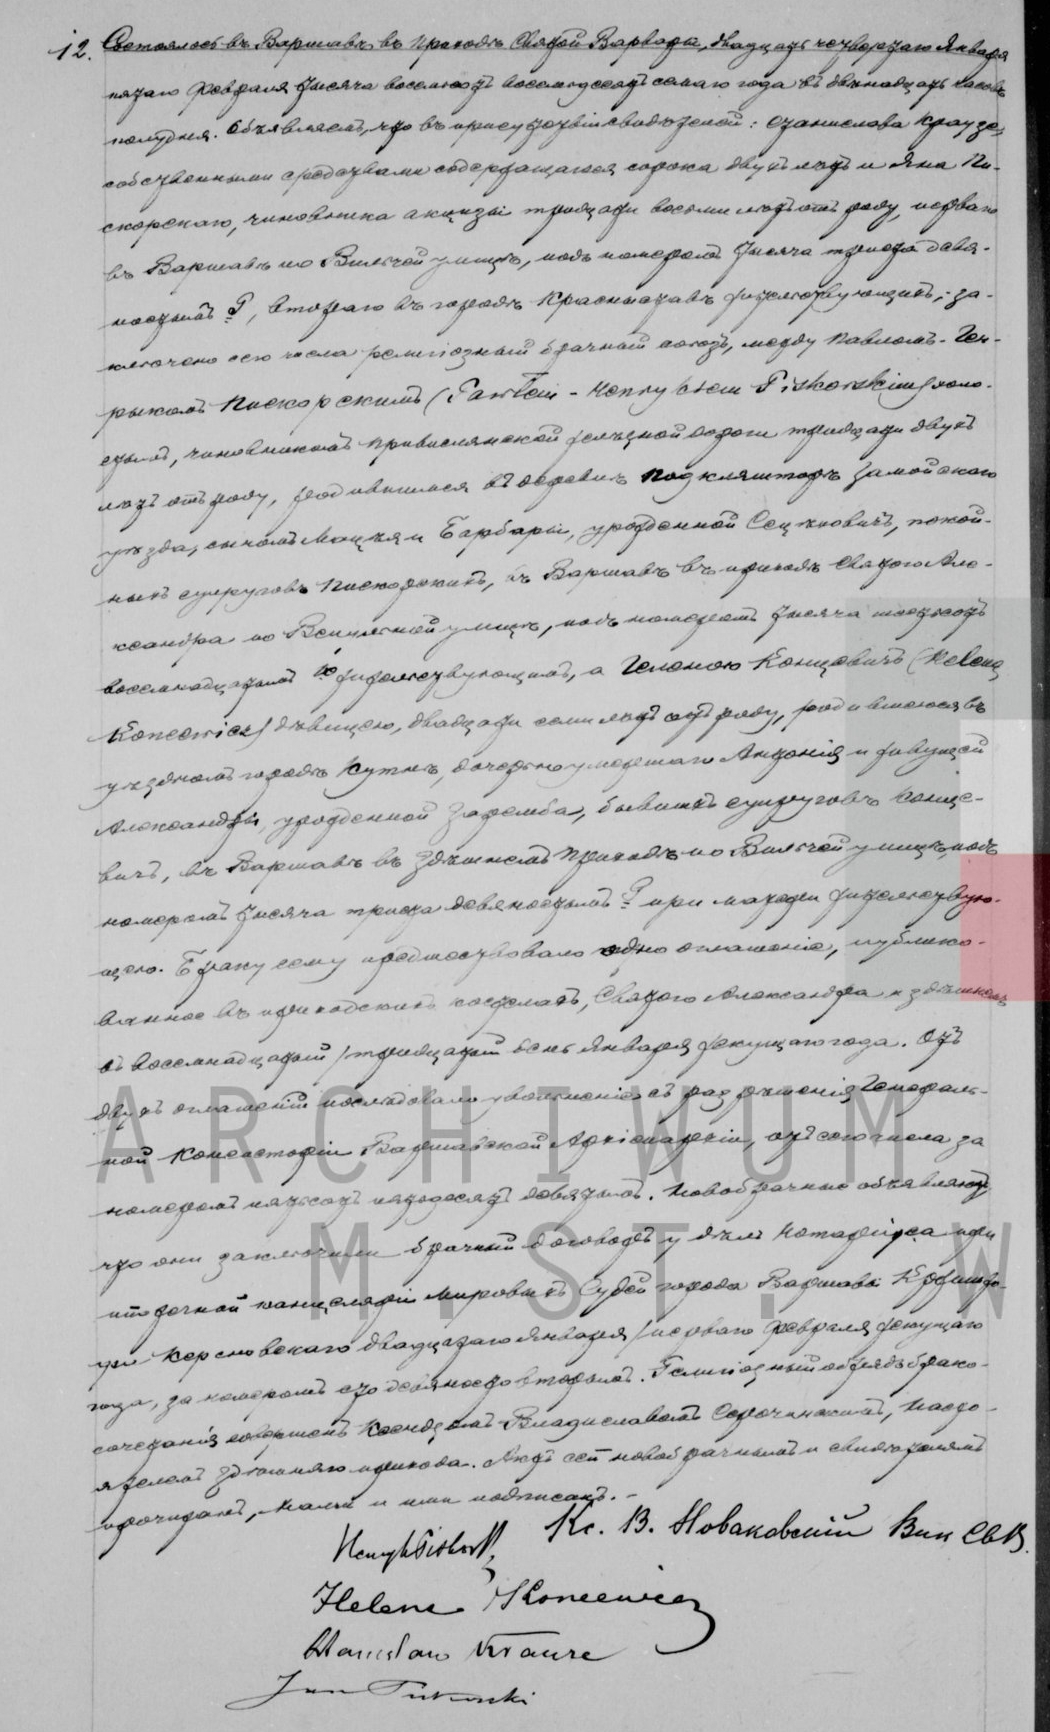 12. Состоялось въ Варшавѣ въ приходѣ Святой Варвары, двадцать четвертаго Января
пятаго Февраля тысяча восемьсотъ восемьдесятъ седьмаго года въ двѣнадцать часовъ
полудня. Объявляемъ, что въ присутствіи свидѣтелей: Станислава Краузе,
собственными средствами содержащагося сорока двухъ лѣтъ и Яна Пи-
скорскаго, чиновника акцизы тридцати восьми лѣтъ отъ роду, перваго
въ Варшавѣ по Вильчей улицѣ, подъ номеромъ тысяча триста девя-
ностымъ, втораго въ городѣ Красныставѣ жительствующихъ; за-
ключенъ сего числа религіозный брачный союзъ, между Павломъ-Ген-
рыкомъ Пискорскимъ (Pawłem-Henrykiem Piskorskim) холо-
стымъ, чиновникомъ Привислянской желѣзной дороги тридцати двухъ
лѣтъ отъ роду, родившимся въ деревнѣ Подкляшторъ Замойскаго
уѣзда, сыномъ Мацѣя и Барбары, урожденной, покой-
ныхъ супруговъ Пискорскихъ, въ Варшавѣ въ приходѣ Святого Але-
ксандра по улицѣ, подъ номеромъ тысяча шестьсотъ
восемнадцатымъ жительствующимъ, а Геленою Концевичъ (Helena
Koncewicz) дѣвицею, двадцати семи лѣтъ отъ роду, родившеюся въ
уѣздномъ городѣ Кутнѣ, дочерью умершаго Антонія и живущей
Александры, урожденной Заремба, бывшихъ супруговъ Конце-
вичъ, въ Варшавѣ въ здѣшнемъ приходѣ по Вильчей улицѣ, подъ
номеромъ тысяча триста девяностымъ при матери жительствую-
щею. Браку сему предшествовало одно оглашеніе, публико-
ванное въ приходскихъ костелахъ, Святого Александра и здѣшнемъ
въ восемнадцатый/тридцатый день Января текущаго года. Отъ
двухъ оглашеній послѣдовало увольненіе съ разрѣшенія Генераль-
ной Консисторіи Варшавской Архіепархіи, отъ сего числа за
номеромъ пятьсотъ пятьдесятъ девятымъ. Новобрачные объявляютъ,
что они заключили брачный договоръ у дѣлъ Нотаріуса при
ипотечной канцеляріи Мировыхъ Судей города Варшавы
Керсновскаго двадцатаго Января/перваго Февраля текущаго
года, за номеромъ сто девяносто вторымъ. Религіозный обрядъ брако-
сочетанія совершенъ Ксендзомъ Владиславомъ, Насто-
ятелемъ здѣшняго прихода. Актъ сей новобрачнымъ и свидѣтелямъ
прочитанъ, Нами и ими подписанъ.-
Кс. В. Новаковскій Вик Св В.
Henryk Piskorski
Helena Koncewicz
Stanisław Krauze
Jan Piskorski
ARCHIWUM
M. ST. W